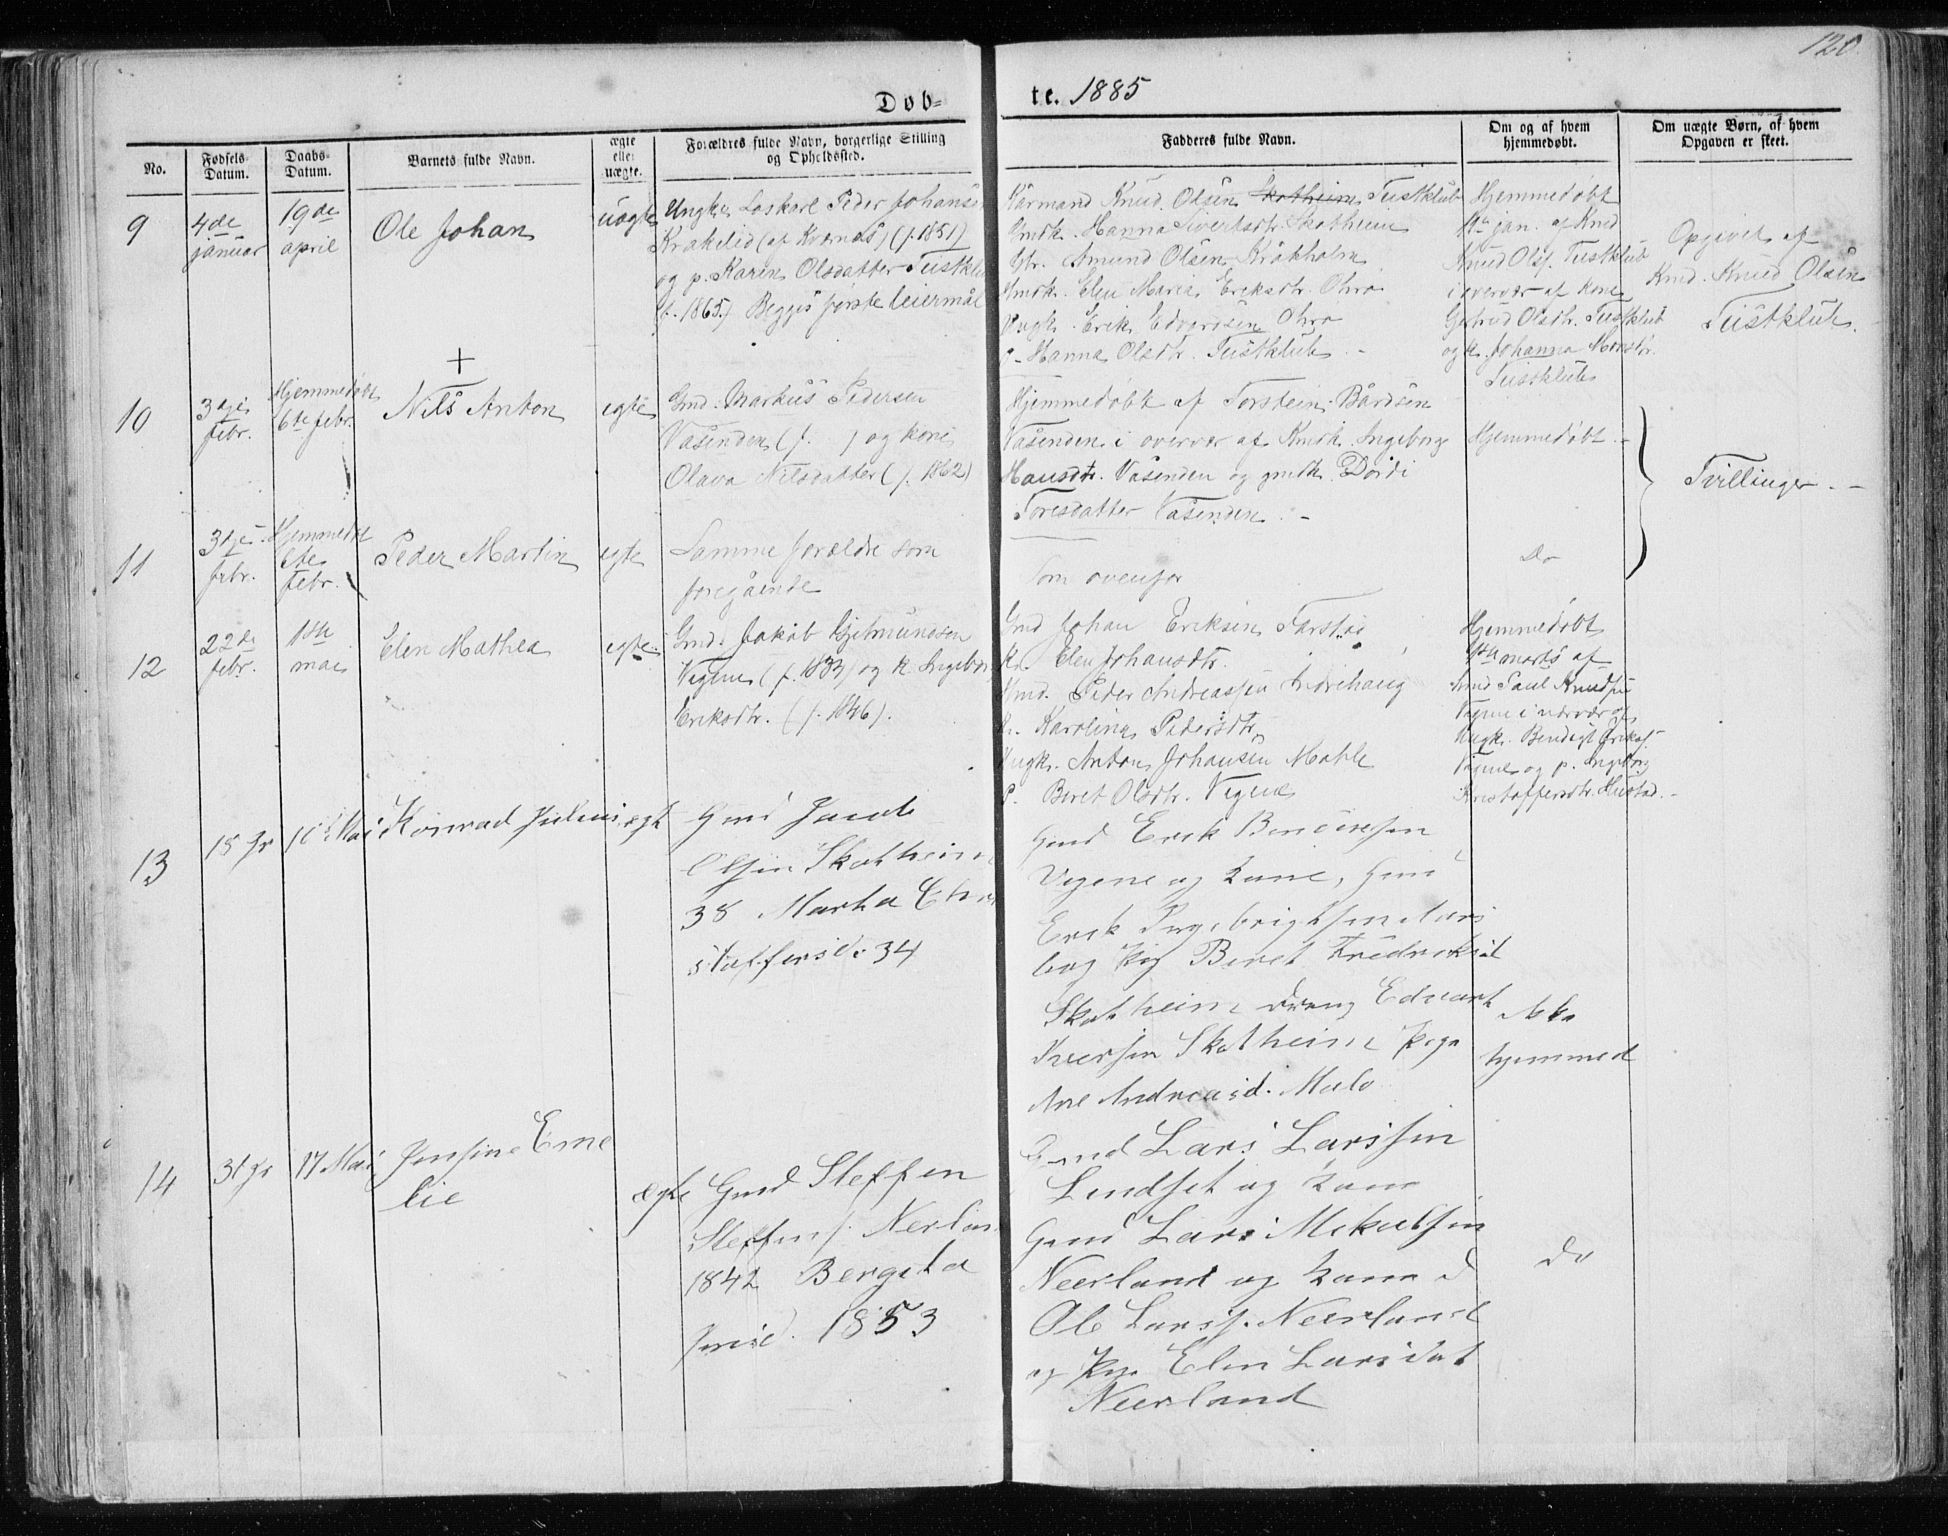 120.
Døb-
te. 1885
No.
Fødsels-
Datum.
Daabs-
Datum.
Barnets fulde Navn.
ægte
eller
uægte.
Forældres fulde Navn, borgerlige Stilling
og Opholdssted.
Fadderes fulde Navn.
Om og af hvem
hjemmedøbt.
Om uægte Børn, af hvem
Opgaven er skeet.
9
4de
januar
19de
april
Ole Johan
uægte
Ungk. Løskarl Peder Johans
Kråkelid (af Kværnæs) (f. 1851)
og p. Karen Olsdatter Tustklu
(f. 1865.) Begges første leiermål
Kårmand Knud Olsen Skotheim Tustklub
Gmdk. Hanna Sivertsdtr Skotheim
Amund Olsen Kråkholm
Gmdk. Elen Maria Eriksdtr. Ohro
Ungk. Erik Edvardsen Ohro
p. Hanna Olsdtr. Tustklub. -
Hjemmedøbt
jan. af Kmd
Knud Ols. Tustklub
i overvær af kone
Gjertrud Olsdtr. Tustklub
og k. Johanna Monsdtr.
Tustklub
Opgivet af
Kmd. Knud Olsen
Tustklub.
+
10
3dje
febr.
Hjemmedøbt
6te febr.
Nils Anton
egte
Gmd. Markus Pedersen
Vasenden (f. ) og kone
Olava Nilsdatter (f. 1862)
Hjemmedøbt af Torstein Bårdsen
Vasenden i overvær af Kmdk. Ingeborg
Hansdtr. Vasenden og gmdk. Dordi
Toresdatter Vasenden. -
Hjemmedøbt. -
Tvillinger. -
11
3dje
febr.
Hjemmedøbt
6te
febr.
Peder Martin
egte
Samme forældre som
foregående
Som ovenfor
Do
12
22de
febr.
mai
Elen Mathea
egte.
Gmd. Jakob Gjetmundsen
Vegene (f. 1833) og k. Ingebor
Eriksdtr. (f. 1846).
Gmd Johan Eriksen Farstad
k. Elen Johansdtr.
Gmd. Peder Andreassen Indrehaug
k. Karolina Pedersdtr.
Ungk. Anton Johansen Mahle
p. Beret Olsdtr. Vegene
Hjemmedøbt
marts af
Kmd Paul Knudsen
Vegene i nærvær af
Ungk. Bendigt Eriks.
Vegene og p. Ingeborg
Kristoffersdtr. Hustad. -
13
18 Jr
Mai
Konrad Julius
egt
Gmd Jacob
Olsen Skotheim
38 Marta Chri
stoffersd. 34
Gmd Erik Bendixsen
Vegene og Kone, Gmd
Erik Ingebrigtsen
og Pig Beret Fredriksd
Skotheim dreng Eduart
Iversen Skotheim Pige
Ane Andreasd. Malo
Ikke
hjemmed
14
31 Jr
17 Mai
Jensine Eme
lie
ægte
Gmd Steffen
Steffens. Nerlan
1842 Bergita
Jensd. 1853
Gmd Lars Larssen
Lindset og Kone
Gmd Lars Mikalsen
Neerland og Kone d
Ole Larss. Neerland
og Pige Elen Larsdat
Neerland
do